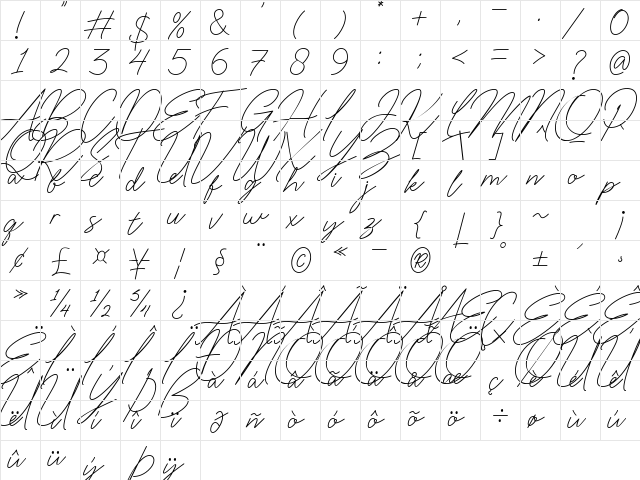 ! " # $ % & ' ( ) * + , - . / 0
1 2 3 4 5 6 7 8 9 : ; < = > ? @
A B C D E F G H I J K L M N O P
Q R S T U V W X Y Z [ \ ] ^ _ `
a b c d e f g h i j k l m n o p
q r s t u v w x y z { | } ~ ¡
¢ £ ¤ ¥ ¦ § ¨ © « ¯ ® ° ±
» 1/4 1/2 3/4 ¿ À Á Â Ã Ä Å Æ Ç È É Ê
Ë Ì Í Î Ï Ð Ñ Ò Ó Ô Õ Ö × Ø Ù Ú
Û Ü Ý Þ ß à á â ã ä å æ ç è é ê
ë ì í î ï ð ñ ò ó ô õ ö ÷ ø ù ú
û ü ý þ ÿ